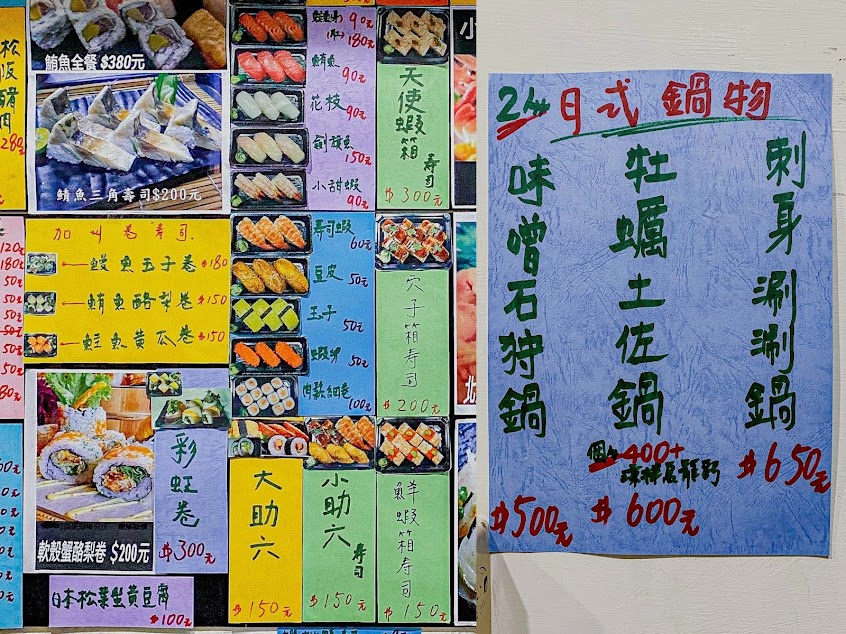 松
阪
豬
肉
280元
鮪魚全餐 $380元
鯖魚三角壽司$200元
加州卷壽司
鰻魚玉子卷 $180
鮪魚酪梨卷 $150
鮭魚黃瓜卷 $150
軟殼蟹酪梨卷 $200元
彩虹卷
$300元
日本松葉蟹黃豆腐
$100元
90元
180元
鮪魚
90元
花枝
90元
劍旗魚
150元
小甜蝦
90元
壽司蝦
60元
豆皮
50元
玉子
50元
蝦卵
50元
肉鬆細卷
100元
大助六
$150元
小助六壽司
$150元
天使蝦箱壽司
$300元
穴子箱壽司
$200元
鮮蝦箱壽司
$150元
120元
180元
50元
50元
50元
50元
小
北
2人日式鍋物
刺身涮涮鍋
$650元
牡蠣土佐鍋
400+
$600元
味噌石狩鍋
$500元